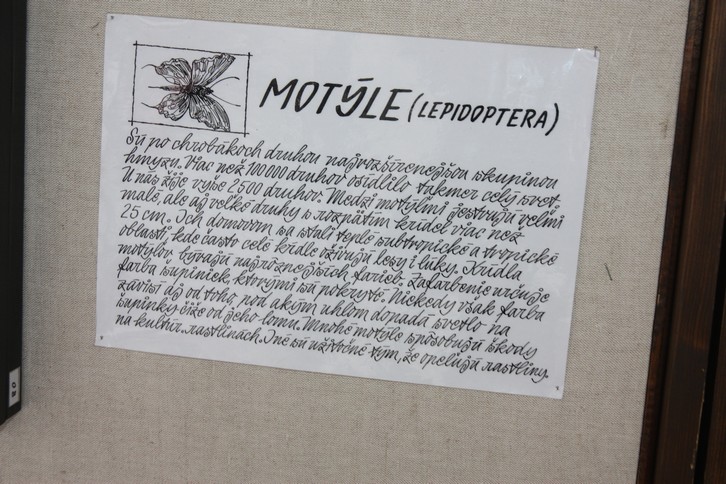 MOTÝLE (LEPIDOPTERA)
Sú po chrobákoch druhou najrozšírenejšou skupinou
hmyzu. Viac než 100 000 druhov osídlilo takmer celý svet.
U nás žije vyše 2500 druhov. Medzi motýlmi jestvujú veľmi
malé, ale aj veľké druhy s rozpätím krídel viac než
25 cm. Ich domovom sa stali teplé subtropické a tropické
oblasti, kde často celé kŕdle oživujú lesy i lúky. Krídla
motýľov bývajú najrôznejších farieb. Zafarbenie určuje
farba šupiniek, ktorými sú pokryté. Niekedy však farba
závisí aj od toho, pod akým uhlom dopadá svetlo na
šupinky čiže od jeho lomu. Mnohé motýle spôsobujú škody
na kultúr. rastlinách. Iné sú užitočné tým, že opeľujú rastliny.